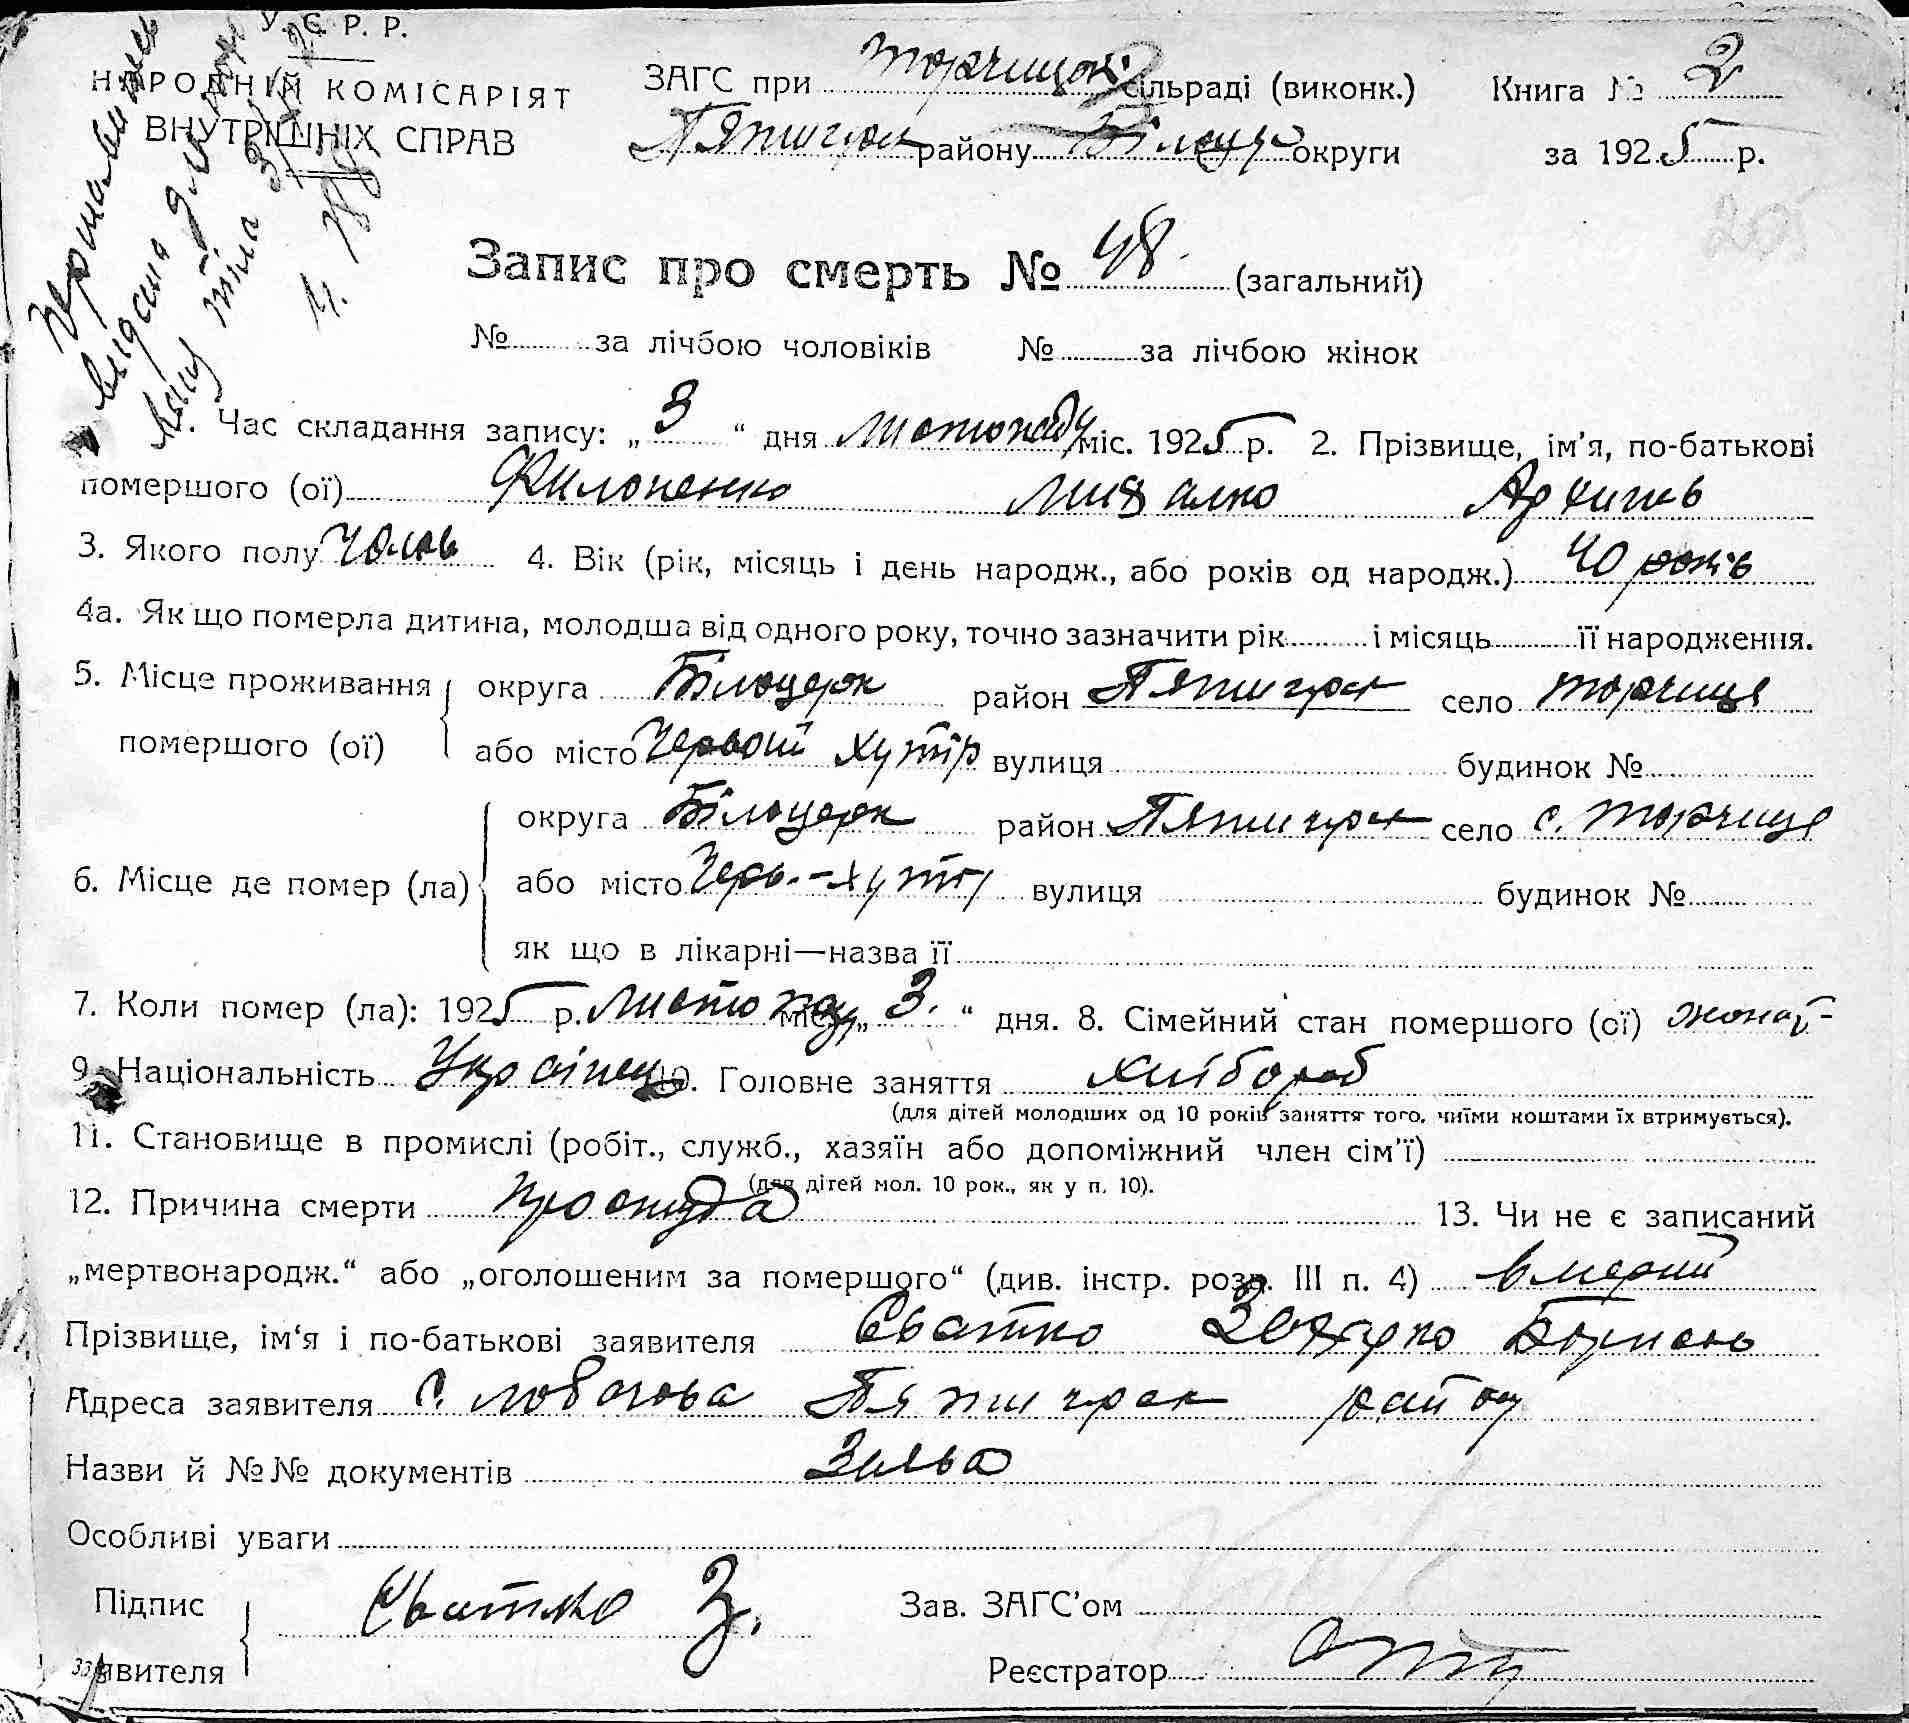 У. С. Р. Р.
НАРОДНІЙ КОМІСАРІЯТ
ВНУТРІШНІХ СПРАВ
ЗАГС при Торчицькій сільраді (виконк.)
Пятигор району Білоцер округи
Книга № 2
за 1925 р.
205
Запис про смерть № 48. (загальний)
№ за лічбою чоловіків № за лічбою жінок
1. Час складання запису: „3“ дня листопаду міс. 1925 р. 2. Прізвище, ім'я, по-батькові
помершого (ої) Филоненко Михалко Архипів
3. Якого полу Чолов 4. Вік (рік, місяць і день народж., або років од народж.) 40 років
4а. Як що померла дитина, молодша від одного року, точно зазначити рік і місяць її народження.
5. Місце проживання помершого (ої) округа Білоцерк район Пятигор село Торчиця
або місто Червоний хутір вулиця будинок №
6. Місце де помер (ла) округа Білоцерк район Пятигор село с. Торчиця
або місто Черв.-хутір вулиця будинок №
як що в лікарні—назва її
7. Коли помер (ла): 1925 р. Листопаду місяц „3.“ дня. 8. Сімейний стан помершого (ої) жонат-
9. Національність Українець 10. Головне заняття хлібороб
(для дітей молодших од 10 років заняття того, чиїми коштами їх втримується).
11. Становище в промислі (робіт., служб., хазяїн або допоміжний член сім'ї)
(для дітей мол. 10 рок., як у п. 10).
12. Причина смерти простуда 13. Чи не є записаний
„мертвонародж.“ або „оголошеним за помершого“ (див. інстр. розд. III п. 4) вмерший
Прізвище, ім'я і по-батькові заявителя Сватко
Адреса заявителя с. Лобачова Пятигорск району
Назви й №№ документів
Особливі уваги
Підпис заявителя Сватко З.
Зав. ЗАГС'ом
Реєстратор